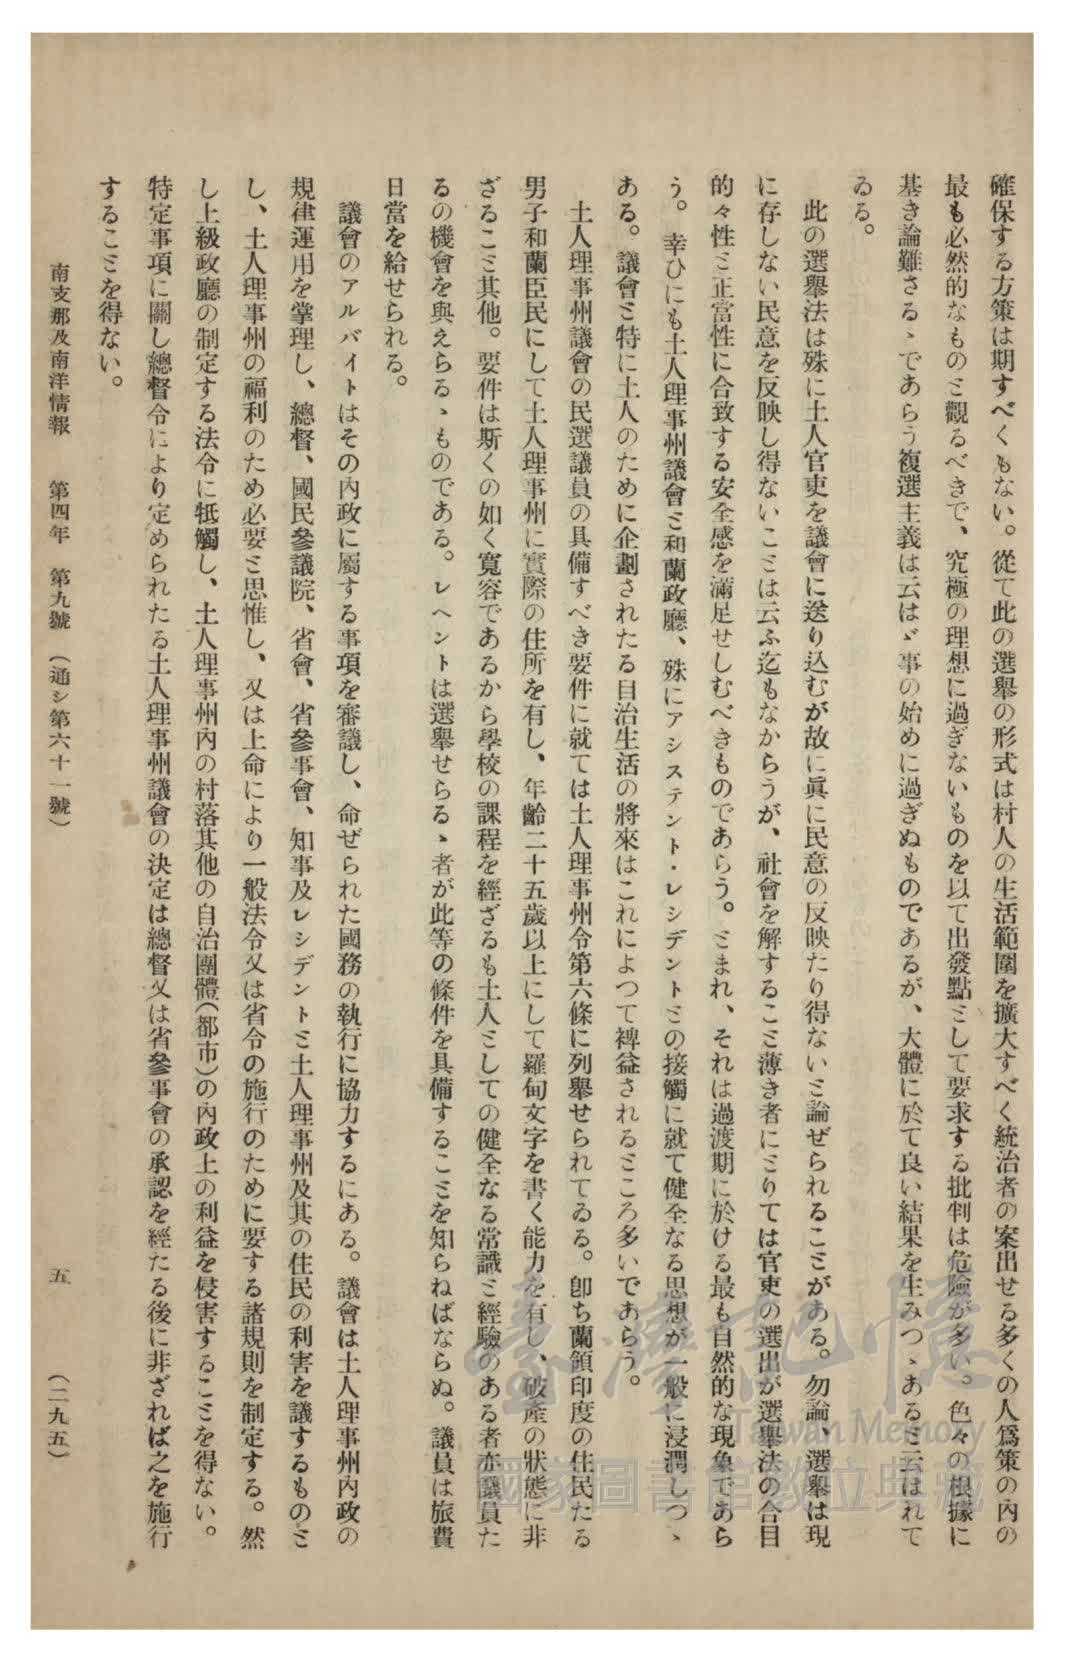 確保する方策は期すべくもない。從て此の選擧の形式は村人の生活範圍を擴大すべく統治者の案出せる多くの人爲策の內の
最も必然的なものと觀るべきで、究極の理想に過ぎないものを以て出發點として要求する批判は危險が多い。色々の根據に
基き論難さるゝであらう複選主義は云はゞ事の始めに過ぎぬものであるが、大體に於て良い結果を生みつゝあると云はれて
ゐる。
此の選擧法は殊に土人官吏を議會に送り込むが故に眞に民意の反映たり得ないと論ぜられることがある。勿論、選擧は現
に存しない民意を反映し得ないことは云ふ迄もなからうが、社會を解すること薄き者にとりては官吏の選出が選擧法の合目
的々性と正當性に合致する安全感を滿足せしむべきものであらう。とまれ、それは過渡期に於ける最も自然的な現象であら
う。幸ひにも土人理事州議會と和蘭政廳、殊にアシステント・レシデントとの接觸に就て健全なる思想が一般に浸潤しつゝ
ある。議會と特に土人のために企劃されたる自治生活の將來はこれによつて裨益されるところ多いであらう。
土人理事州議會の民選議員の具備すべき要件に就ては土人理事州令第六條に列擧せられてゐる。卽ち蘭領印度の住民たる
男子和蘭臣民にして土人理事州に實際の住所を有し、年齡二十五歲以上にして羅甸文字を書く能力を有し、破產の狀態に非
ざること其他。要件は斯くの如く寬容であるから學校の課程を經ざるも土人としての健全なる常識と經驗のある者亦議員た
るの機會を與えらるゝものである。レヘントは選擧せらるゝ者が此等の條件を具備することを知らねばならぬ。議員は旅費
日當を給せられる。
議會のアルバイトはその內政に屬する事項を審議し、命ぜられた國務の執行に協力するにある。議會は土人理事州內政の
規律運用を掌理し、總督、國民參議院、省會、省參事會、知事及レシデントと土人理事州及其の住民の利害を議するものと
し、土人理事州の福利のため必要と思惟し、又は上命により一般法令又は省令の施行のために要する諸規則を制定する。然
し上級政廳の制定する法令に牴觸し、土人理事州內の村落其他の自治團體（都市）の內政上の利益を侵害することを得ない。
特定事項に關し總督令により定められたる土人理事州議會の決定は總督又は省參事會の承認を經たる後に非ざれば之を施行
することを得ない。
南支那及南洋情報　第四年　第九號（通シ第六十一號）　五　（二九五）
臺灣記憶
Taiwan Memory
國家圖書館數位典藏